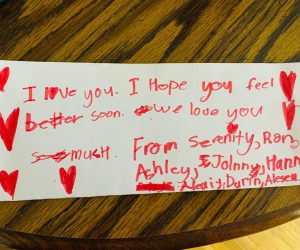 I love you. I Hope you feel
better soon. we love you
so much
From Serenity, Ran
Ashley, Johnny, Hann
Alexis, Durin, Alesea